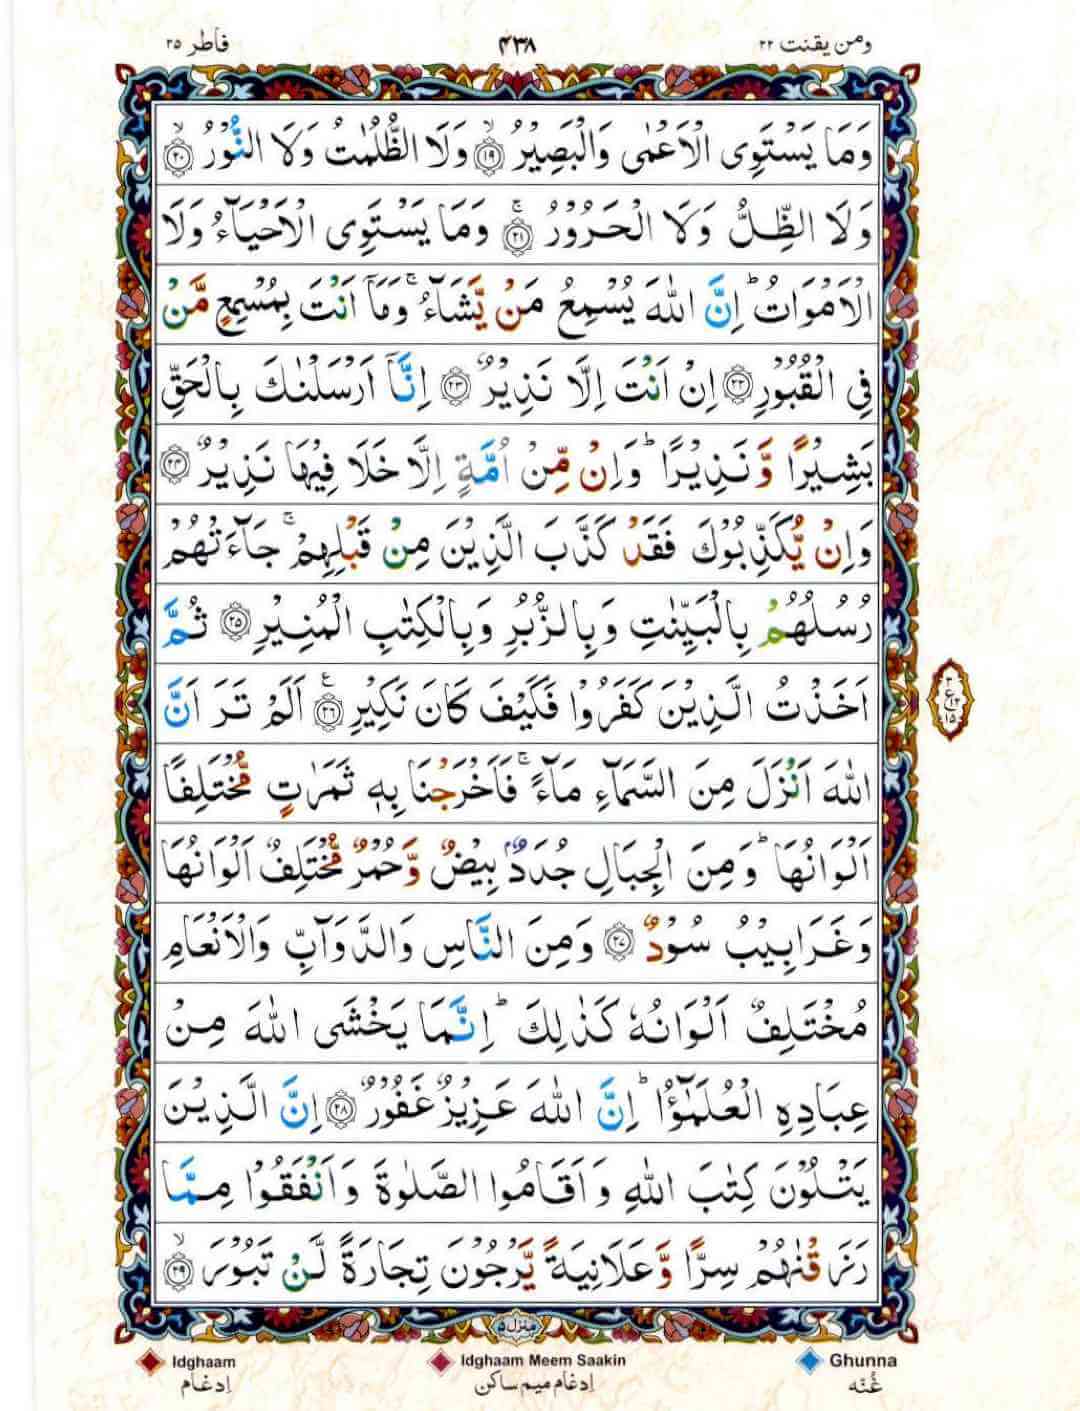 ومن يقنت ٢٢ ٤٣٨ فاطر ٣٥
وَمَا يَسْتَوِى الْاَعْمٰى وَالْبَصِيْرُ ۙ‏﴿۱۹﴾ وَلَا الظُّلُمٰتُ وَلَا النُّوْرُ ۙ‏﴿۲۰﴾
وَلَا الظِّلُّ وَلَا الْحَرُوْرُ ۚ‏﴿۲۱﴾ وَمَا يَسْتَوِى الْاَحْيَآءُ وَلَا
الْاَمْوَاتُ ؕ اِنَّ اللّٰهَ يُسْمِعُ مَنْ يَّشَآءُ ۚ وَمَاۤ اَنْتَ بِمُسْمِعٍ مَّنْ
فِى الْقُبُوْرِ ﴿۲۲﴾ اِنْ اَنْتَ اِلَّا نَذِيْرٌ ﴿۲۳﴾ اِنَّاۤ اَرْسَلْنٰكَ بِالْحَقِّ
بَشِيْرًا وَّنَذِيْرًا ؕ وَاِنْ مِّنْ اُمَّةٍ اِلَّا خَلَا فِيْهَا نَذِيْرٌ ﴿۲۴﴾
وَاِنْ يُّكَذِّبُوْكَ فَقَدْ كَذَّبَ الَّذِيْنَ مِنْ قَبْلِهِمْ ۚ جَآءَتْهُمْ
رُسُلُهُمْ بِالْبَيِّنٰتِ وَبِالزُّبُرِ وَبِالْكِتٰبِ الْمُنِيْرِ ﴿۲۵﴾ ثُمَّ
اَخَذْتُ الَّذِيْنَ كَفَرُوْا فَكَيْفَ كَانَ نَكِيْرِ ﴿۲۶﴾ع اَلَمْ تَرَ اَنَّ
اللّٰهَ اَنْزَلَ مِنَ السَّمَآءِ مَآءً ۚ فَاَخْرَجْنَا بِهٖ ثَمَرٰتٍ مُّخْتَلِفًا
اَلْوَانُهَا ؕ وَمِنَ الْجِبَالِ جُدَدٌۢ بِيْضٌ وَّحُمْرٌ مُّخْتَلِفٌ اَلْوَانُهَا
وَغَرَابِيْبُ سُوْدٌ ﴿۲۷﴾ وَمِنَ النَّاسِ وَالدَّوَآبِّ وَالْاَنْعَامِ
مُخْتَلِفٌ اَلْوَانُهٗ كَذٰلِكَ ؕ اِنَّمَا يَخْشَى اللّٰهَ مِنْ
عِبَادِهِ الْعُلَمٰٓؤُا ؕ اِنَّ اللّٰهَ عَزِيْزٌ غَفُوْرٌ ﴿۲۸﴾ اِنَّ الَّذِيْنَ
يَتْلُوْنَ كِتٰبَ اللّٰهِ وَاَقَامُوا الصَّلٰوةَ وَاَنْفَقُوْا مِمَّا
رَزَقْنٰهُمْ سِرًّا وَّعَلَانِيَةً يَّرْجُوْنَ تِجَارَةً لَّنْ تَبُوْرَ ۙ‏﴿۲۹﴾
منزل ٥
Idghaam Idghaam Meem Saakin Ghunna
اِدغام اِدغام میم ساکن غُنّه